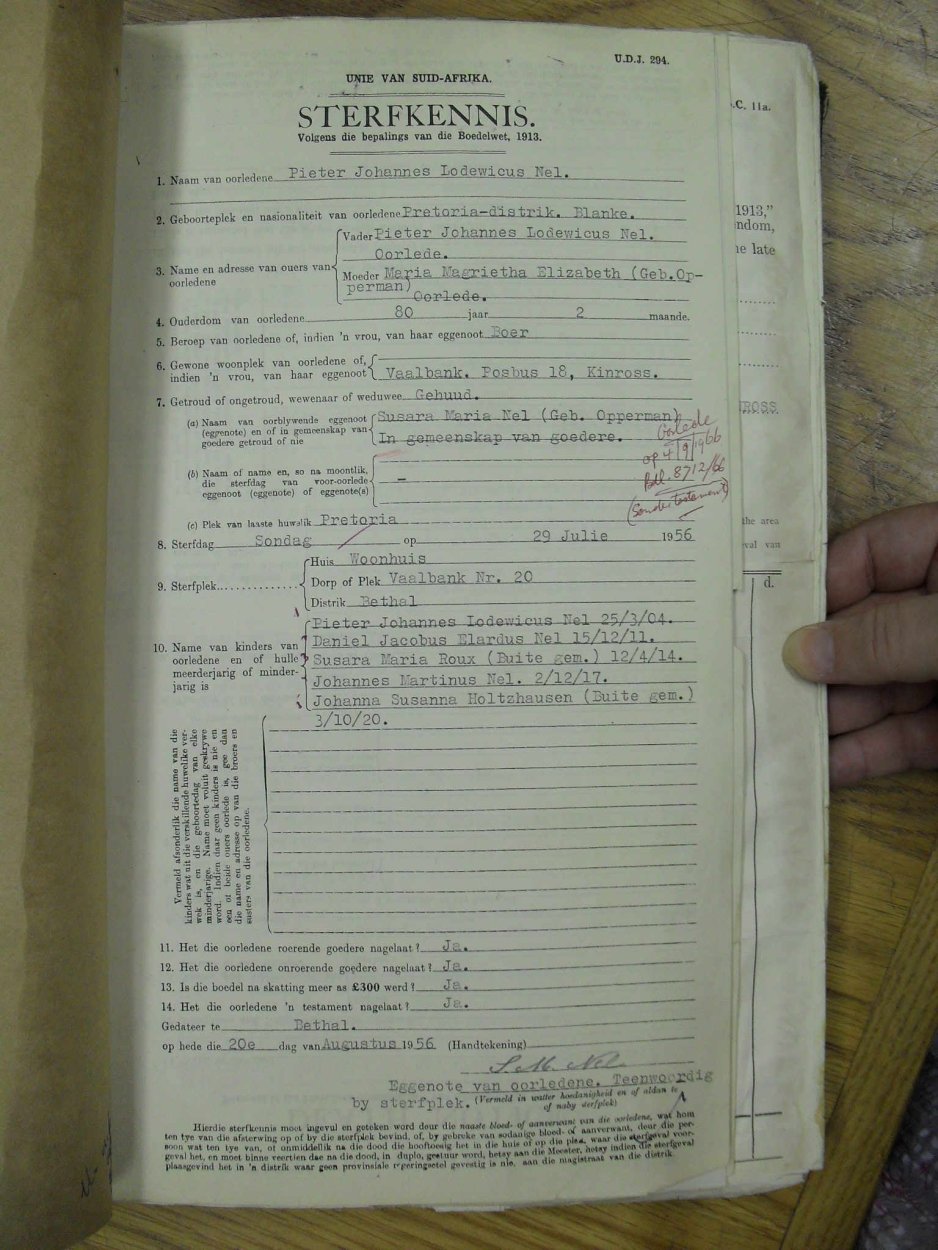 U.D.J. 294.
UNIE VAN SUID-AFRIKA.
STERFKENNIS.
Volgens die bepalings van die Boedelwet, 1913.
1. Naam van oorledene Pieter Johannes Lodewicus Nel.
2. Geboorteplek en nasionaliteit van oorledene Pretoria-distrik. Blanke.
3. Name en adresse van ouers van oorledene
Vader Pieter Johannes Lodewicus Nel.
Oorlede.
Moeder Maria Magrietha Elizabeth (Geb.Op-
perman)
Oorlede.
4. Ouderdom van oorledene 80 jaar 2 maande.
5. Beroep van oorledene of, indien 'n vrou, van haar eggenoot Boer
6. Gewone woonplek van oorledene of,
indien 'n vrou, van haar eggenoot Vaalbank. Posbus 18, Kinross.
7. Getroud of ongetroud, wewenaar of weduwee Gehuud.
(a) Naam van oorblywende eggenoot Susara Maria Nel (Geb. Opperman)
(eggenote) en of in gemeenskap van
goedere getroud of nie In gemeenskap van goedere.
Oorlede
op 4/9/1966
Bdl. 8712/66
(Sonder testament)
(b) Naam of name en, so na moontlik,
die sterfdag van voor-oorlede –
eggenoot (eggenote) of eggenote(s)
(c) Plek van laaste huwelik Pretoria
8. Sterfdag Sondag op 29 Julie 1956
9. Sterfplek
Huis Woonhuis
Dorp of Plek Vaalbank Nr. 20
Distrik Bethal
10. Name van kinders van
oorledene en of hulle
meerderjarig of minder-
jarig is
Pieter Johannes Lodewicus Nel 25/3/04.
Daniel Jacobus Elardus Nel 15/12/11.
Susara Maria Roux (Buite gem.) 12/4/14.
Johannes Martinus Nel. 2/12/17.
Johanna Susanna Holtzhausen (Buite gem.)
3/10/20.
Vermeld afsonderlik die name van die
kinders wat uit die verskillende huwelike ver-
wek is, en die geboortedag van elke
minderjarige. Name moet voluit geskrywe
word. Indien daar geen kinders is nie en
een of beide ouers oorlede is, gee dan
die name en adresse op van die broers en
susters van die oorledene.
11. Het die oorledene roerende goedere nagelaat? Ja.
12. Het die oorledene onroerende goedere nagelaat? Ja.
13. Is die boedel na skatting meer as £300 werd? Ja.
14. Het die oorledene 'n testament nagelaat? Ja.
Gedateer te Bethal.
op hede die 20e dag van Augustus 1956 (Handtekening)
S. M. Nel.
Eggenote van oorledene. Teenwoordig
by sterfplek. (Vermeld in watter hoedanigheid en of aldan te
of naby sterfplek)
Hierdie sterfkennis moet ingevul en geteken word deur die naaste bloed- of aanverwant van die oorledene, wat hom
ten tye van die afsterwing op of by die sterfplek bevind, of, by gebreke van sodanige bloed- of aanverwant, deur die per-
soon wat ten tye van, of onmiddellik na die dood die hooftoesig het in die huis of op die plek, waar die sterfgeval voor-
geval het, en moet binne veertien dae na die dood, in duplo, gestuur word, hetsy aan die Meester, hetsy indien die sterfgeval
plaasgevind het in 'n distrik waar geen provinsiale regeringsetel gevestig is nie, aan die magistraat van die distrik.
.C. 11a.
1913,"
ndom,
he late
ROSS.
the area
val van
d.